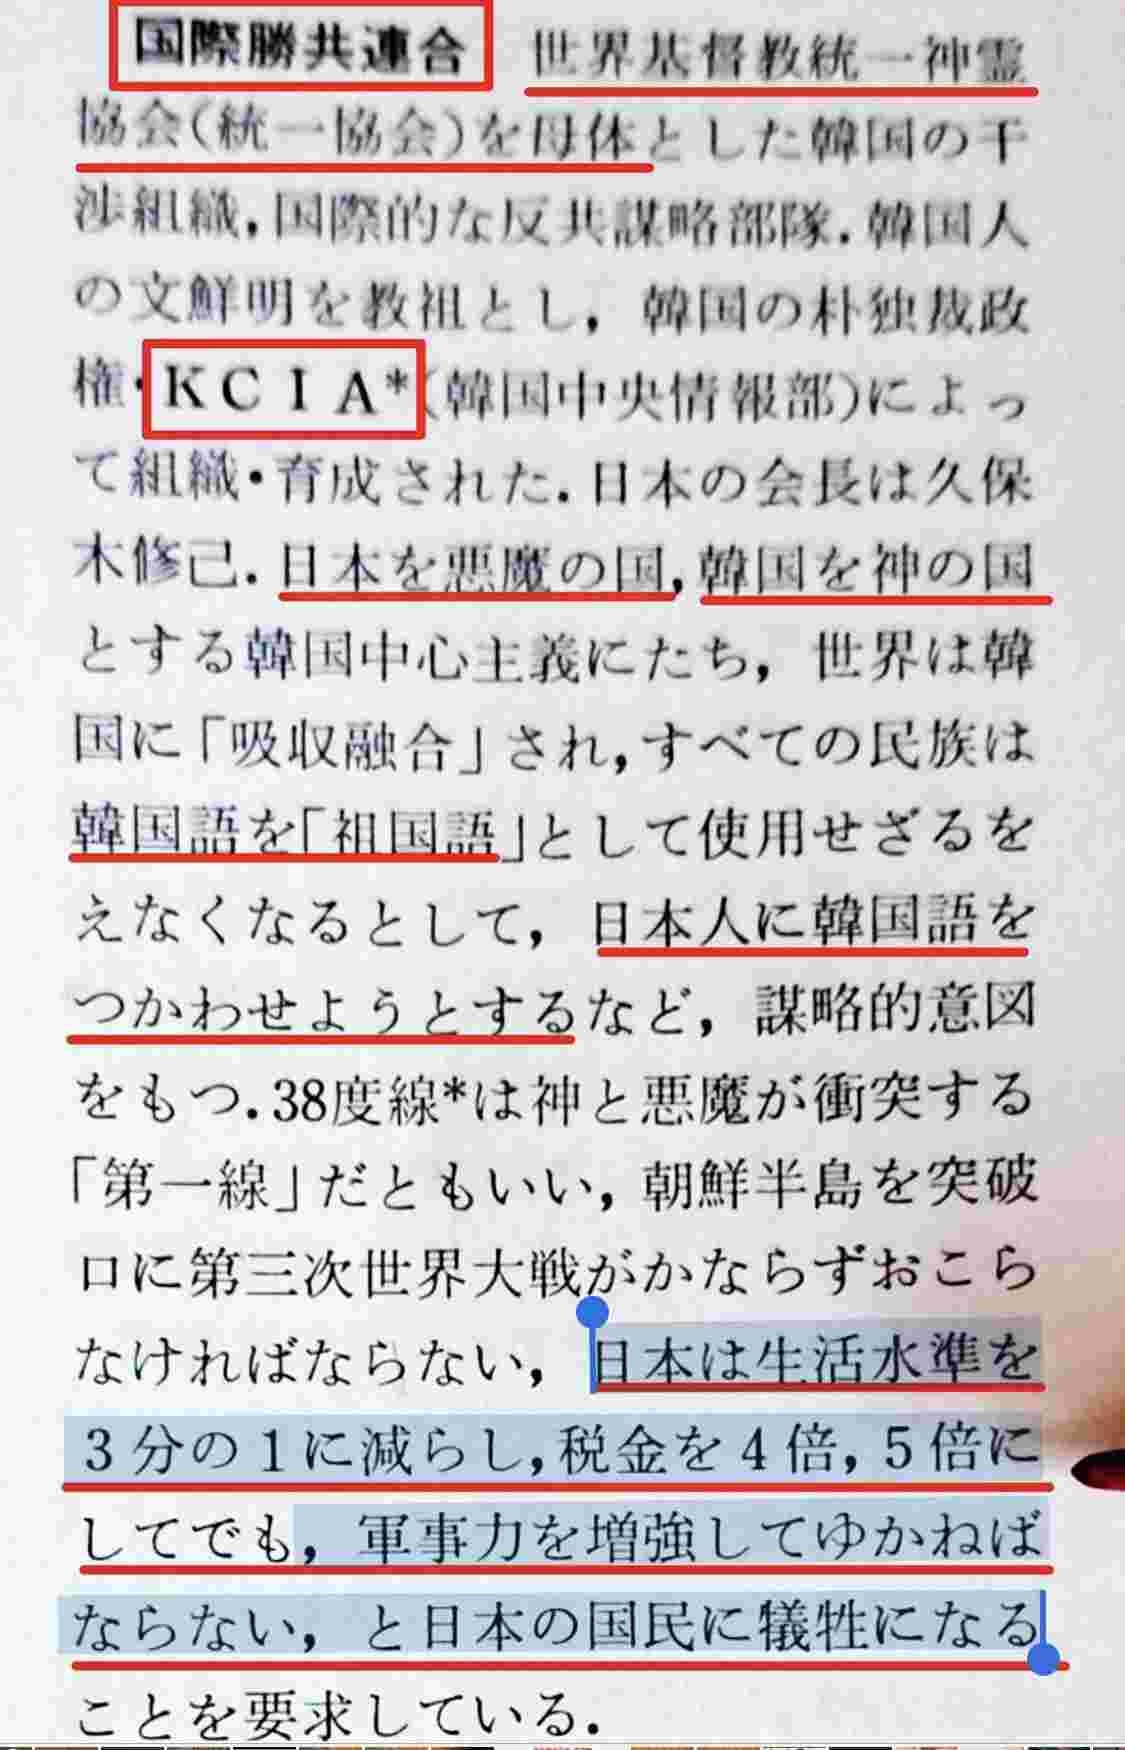 国際勝共連合 世界基督教統一神霊
協会(統一協会)を母体とした韓国の干
渉組織,国際的な反共謀略部隊.韓国人
の文鮮明を教祖とし,韓国の朴独裁政
権・KCIA*(韓国中央情報部)によっ
て組織・育成された.日本の会長は久保
木修己.日本を悪魔の国,韓国を神の国
とする韓国中心主義にたち,世界は韓
国に「吸収融合」され,すべての民族は
韓国語を「祖国語」として使用せざるを
えなくなるとして,日本人に韓国語を
つかわせようとするなど,謀略的意図
をもつ.38度線*は神と悪魔が衝突する
「第一線」だともいい,朝鮮半島を突破
口に第三次世界大戦がかならずおこら
なければならない,日本は生活水準を
3分の1に減らし,税金を4倍,5倍に
してでも,軍事力を増強してゆかねば
ならない,と日本の国民に犠牲になる
ことを要求している.